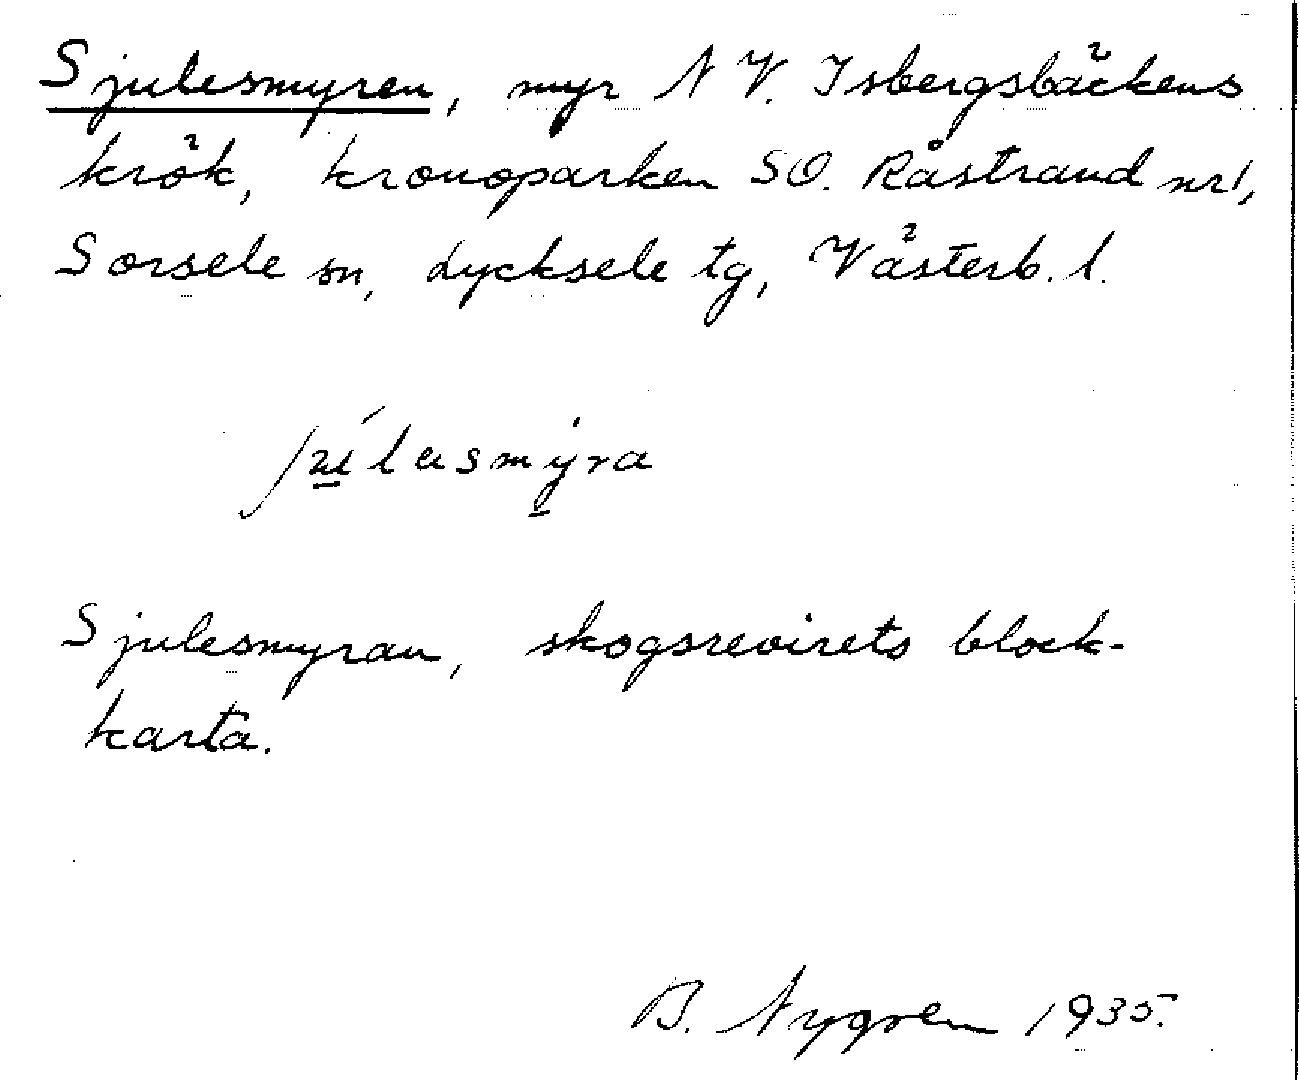 Sjulesmyren, myr NV. Isbergsbäckens
krök, kronoparken SO. Råstrand nr 1,
Sorsele sn, Lycksele tg, Västerb. l.
Sjulesmyran, skogsrevirets block-
karta.
B. Nygren 1935.